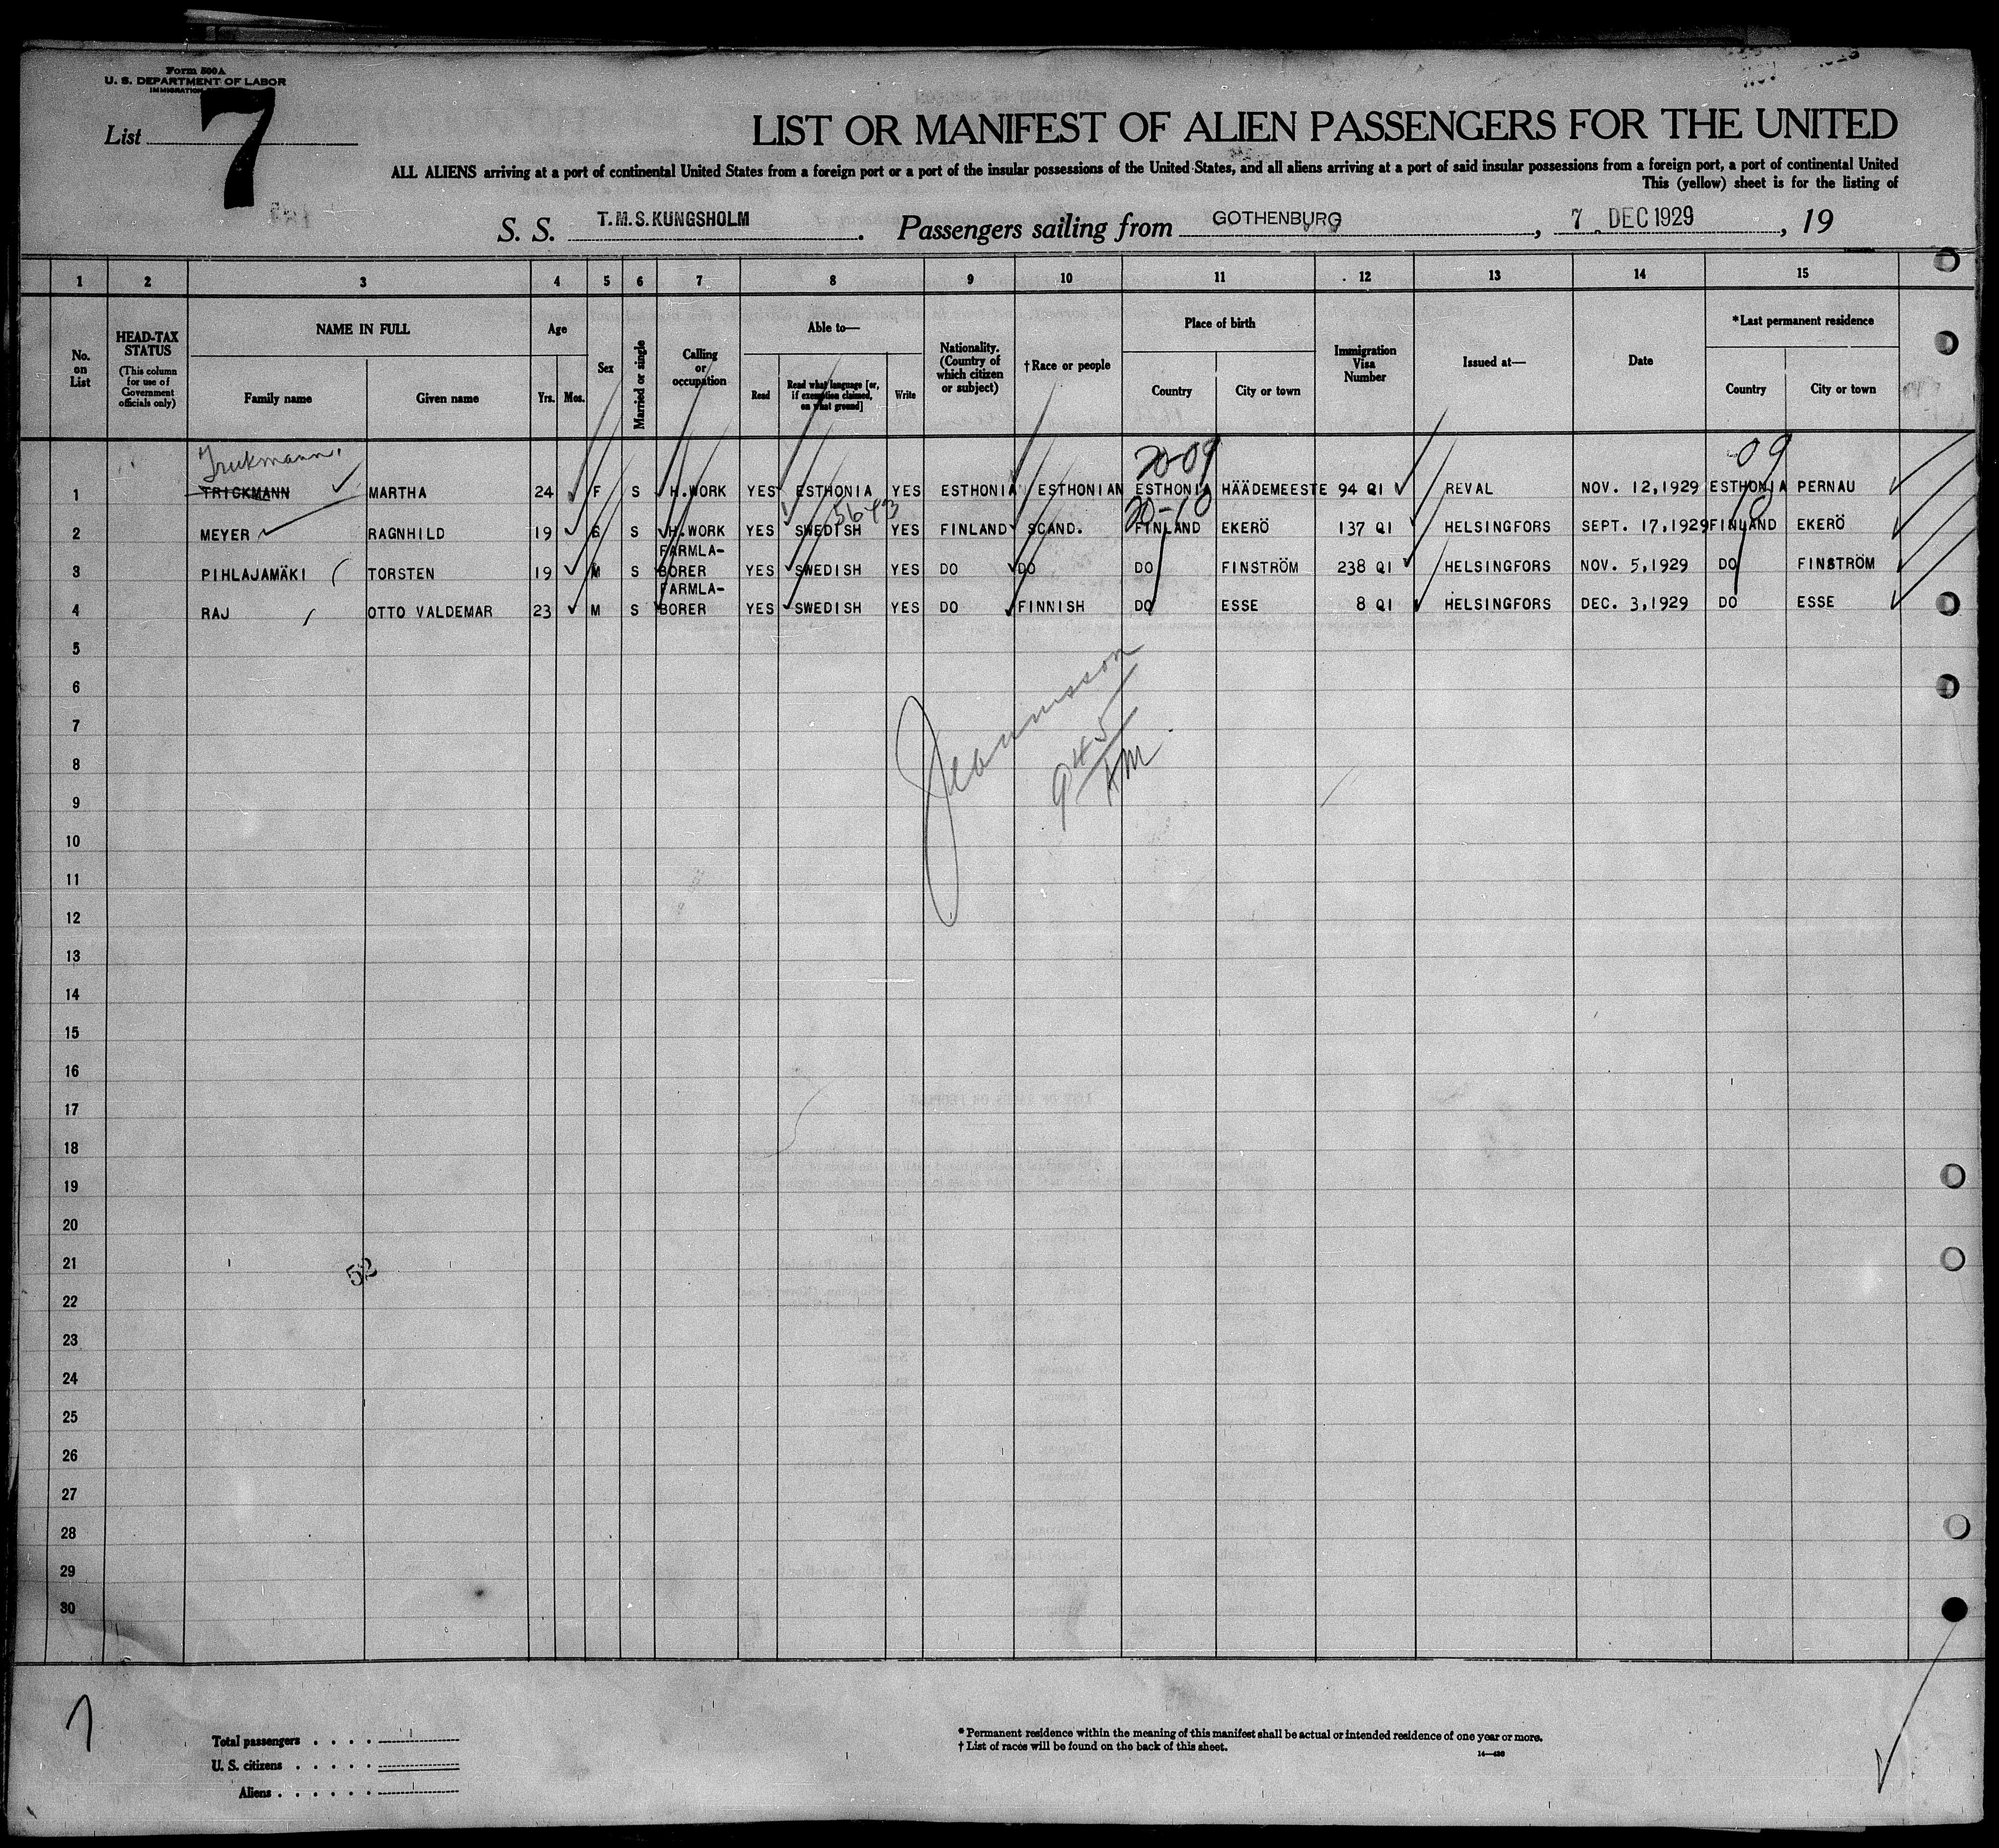 Form 500A
U. S. DEPARTMENT OF LABOR
IMMIGRATION
List 7
LIST OR MANIFEST OF ALIEN PASSENGERS FOR THE UNITED
ALL ALIENS arriving at a port of continental United States from a foreign port or a port of the insular possessions of the United States, and all aliens arriving at a port of said insular possessions from a foreign port, a port of continental United
This (yellow) sheet is for the listing of
S. S. T.M.S. KUNGSHOLM. Passengers sailing from GOTHENBURG, 7 DEC 1929, 19
1 2 3 4 5 6 7 8 9 10 11 12 13 14 15
No. on List
HEAD-TAX STATUS (This column for use of Government officials only)
NAME IN FULL
Family name Given name
Age
Yrs. Mos.
Sex
Married or single
Calling or occupation
Able to—
Read Read what language [or, if exemption claimed, on what ground] Write
Nationality. (Country of which citizen or subject)
†Race or people
Place of birth
Country City or town
Immigration Visa Number
Issued at—
Date
*Last permanent residence
Country City or town
20-09 09
1 TRICKMANN MARTHA 24 F S H.WORK YES ESTHONIA YES ESTHONIA ESTHONIAN ESTHONIA HÄÄDEMEESTE 94 QI REVAL NOV. 12,1929 ESTHONIA PERNAU
20-10 10
2 MEYER RAGNHILD 19 S H.WORK YES SWEDISH YES FINLAND SCAND. FINLAND EKERÖ 137 QI HELSINGFORS SEPT. 17,1929 FINLAND EKERÖ
3 PIHLAJAMÄKI TORSTEN 19 M S FARMLA-BORER YES SWEDISH YES DO DO DO FINSTRÖM 238 QI HELSINGFORS NOV. 5,1929 DO FINSTRÖM
4 RAJ OTTO VALDEMAR 23 M S FARMLA-BORER YES SWEDISH YES DO FINNISH DO ESSE 8 QI HELSINGFORS DEC. 3,1929 DO ESSE
5
6
7
8
9
945 AM
10
11
12
13
14
15
16
17
18
19
20
21
52
22
23
24
25
26
27
28
29
30
Total passengers
U. S. citizens
Aliens
* Permanent residence within the meaning of this manifest shall be actual or intended residence of one year or more.
† List of races will be found on the back of this sheet.